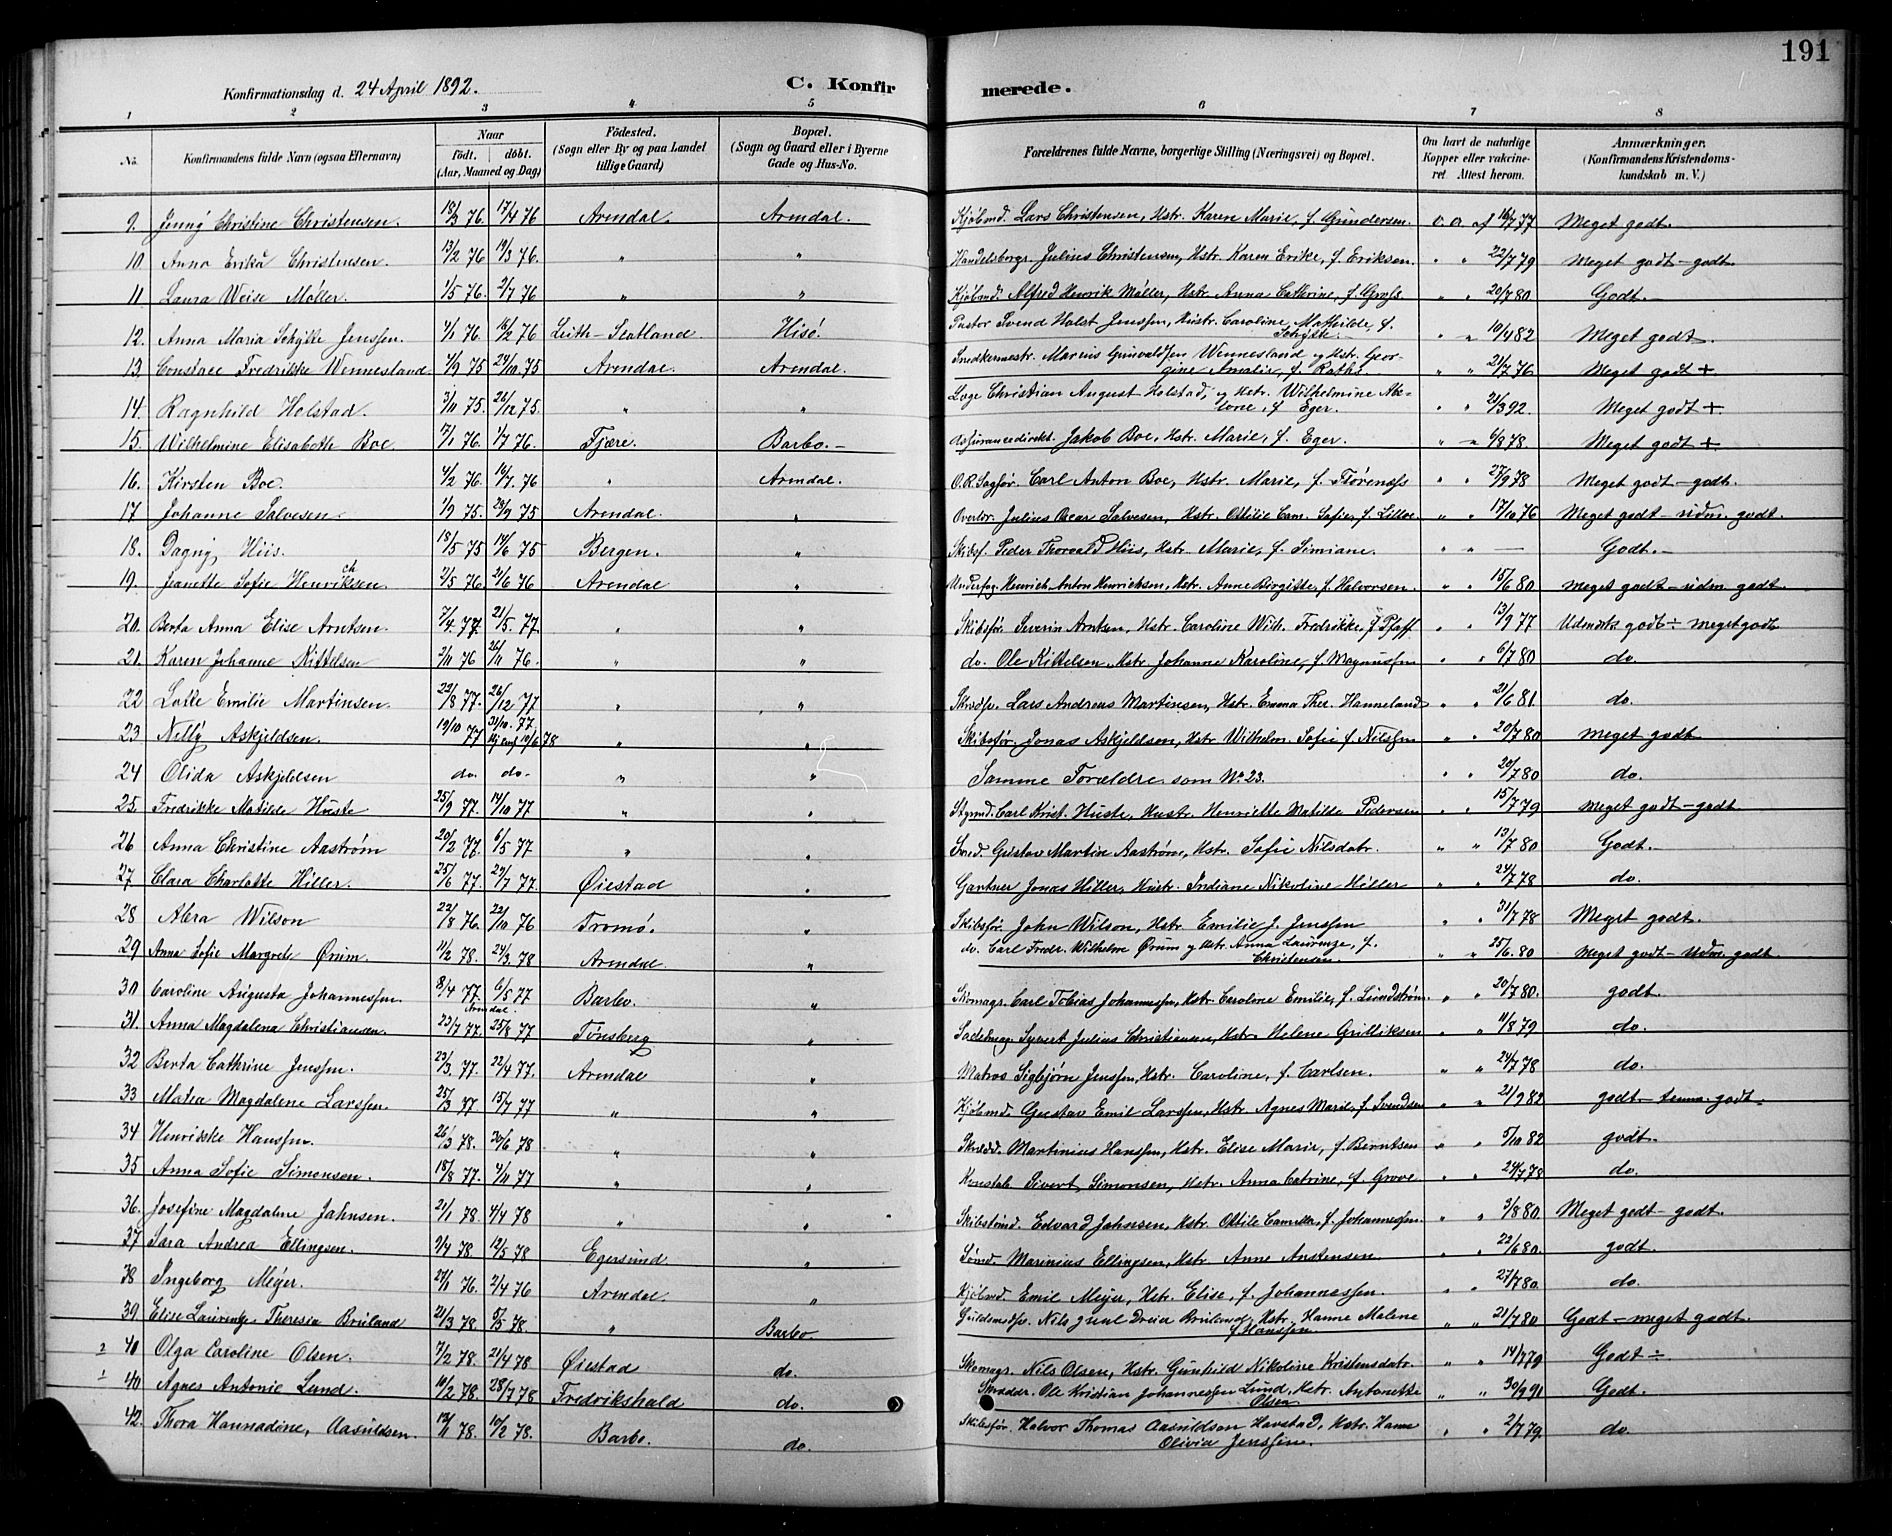 191
Konfirmationsdag d. 24 April 1892.
C. Konfirmerede.
1 2 3 4 5 6 7 8
No. Konfirmandens fulde Navn (ogsaa Efternavn) Naar født. døbt. (Aar, Maaned og Dag) Födested. (Sogn eller By og paa Landet tillige Gaard) Bopæl. (Sogn og Gaard eller i Byerne Gade og Hus-No. Forældrenes fulde Navne, borgerlige Stilling (Næringsvei) og Bopæl. Om havt de naturlige Kopper eller vakcineret Attest herom. Anmærkninger. (Konfirmandens Kristendomskundskab m. V.)
9. Jenny Christine Christensen. 18/3 76 17/4 76 Arendal. Arendal. Kjøbmd. Lars Christensen, Hstr. Karen Marie, f. Gundersen. v. a. af 16/7 77 Meget godt.
10. Anna Erika Christensen. 13/2 76 19/3 76. " " Handelsborgr. Julius Christensen, Hstr. Karen Erike, f. Eriksen. " " 22/7 79 Meget godt - godt.
11 Laura Weise Møller. 1/5 76. 2/7 76 " " Kjøbmd. Alfred Henrik Møller, Hstr. Anna Cathrine, f. Gross. " " 20/7 80 Godt.
12. Anna Maria Schytte Jenssen. 4/1 76. 16/2 76 Leith-Scotland. Hisø. Pastor Svend Holst Jenssen, Hustr. Caroline Mathilde, f. Schytte. " " 10/4 82 Meget godt.
13. Constace Fredrikke Wennesland 7/9 75 24/10 75 Arendal. Arendal. Snedkermestr. Marius Gunvaldsen Wennesland og Hstr. Georgine Amalie, f. Raths. " " 21/7 76 Meget godt +
14. Ragnhild Holstad. 3/11 75. 26/12 75. " " Læge Christian August Holstad, og Hstr. Wilhelmine f. Eger. " " 21/3 92. Meget godt +
15. Wilhelmine Elisabeth Boe 7/1 76. 1/7 76. Fjære. Barbo.- Assurancedirekt. Jakob Boe, Hstr. Marie, f. Eger. " " 6/8 78. Meget godt +
16. Kirsten Boe. 4/2 76 16/7 76 " Arendal. O.R.Sagfør. Carl Anton Boe, Hstr. Marie, f. " " 27/9 78 Meget godt - godt.
17. Johanne Salvesen. 1/9 75. 28/9 75 Arendal. " Overtor. Julius Oscar Salvesen, Hstr. Ottilie Cam. Sofie, f. Lilloe " " 17/10 76 Meget godt - udm. godt.
18. Dagny Hiis. 18/5 75 14/6 75 Bergen. " Skibsf. Peder Thorvald Hiis, Hstr. Marie, f. Simiane. " " — Godt.-
19. Jeanette Sofie Henriksen ch 7/5 76 21/6 76 Arendal " Underfog. Heinrich Anton Henrichsen, Hstr. Anne Birgitte, f. Halvorsen. " " 15/6 80 meget godt - udm. godt.
20. Berta Anna Elise Arntsen. 7/4. 77. 21/5. 77 " " Skibsfør. Severin Arntsen, Hstr. Caroline Wilh. Fredrikke, f. Pfaff. " " 13/9 77 Udmærk. godt ÷ meget godt
21. Karen Johanne Kittelsen 2/11 76 26/11 76. " " do. Ole Kittelsen, Hstr. Johanne Karoline, f. Magnussen " " 6/7 80 do.
22 Lotte Emilie Martinsen. 22/8 77. 26/12 77 " " Skredsv. Lars Andreas Martinsen, Hstr. Emma Ther. Hanneland " " 21/6 81. do.
23 Nelly Askjeldsen. 19/10 77 31/10. 77 10/6 78 " " Skibsfør. Jonas Askjeldsen, Hstr. Wilhelm. Sofie f. Nilssen " " 20/7 80 Meget godt
24 Olida Askjeldsen do. do. " " Samme Forældre som No 23. " " 20/7 80 do.
25. Fredrikke Matilde Huste 25/9 77. 14/10 77 " " Styrmd. Carl Krist. Huste, Hustr. Henriette Matilde Pedersen " " 15/7 79 Meget godt - godt
26 Anna Christine Aastrøm 20/2 77. 6/5 77 " " Smed. Gustav Martin Aastrøm, Hstr. Sofie Nilsdatr. " " 13/7 80 Godt.
27. Clara Charlotte Hiller. 25/6 77. 29/7 77. Øiestad " Gartner Jonas Hiller, Hustr. Indiane Nikoline Hiller " " 24/7 78 do.
28 Abra Wilson 22/8 76. 22/10 76 Tromø. " Skibsfør. John Wilson, Hstr. Emilie J. Jenssen " " 31/7 78 Meget godt.
29 Anna Sofie Margrete Ørum. 11/2 78. 24/3 78 Arendal. " do. Carl Fredr. Wilhelm Ørum og Hstr. Anna Laurenze, f. Christensen. " " 25/6 80 Meget godt - Udm. godt
30 Caroline Augusta Johannessen. 8/4 77. 6/5 77 Barbo. " Skomagr. Carl Tobias Johannessen, Hstr. Caroline Emilie, f. Lundstrøm. " " 20/7 80. godt.
31. Anna Magdalena Christiansen. 23/7 77. Arendal. 25/8 77 Tønsberg " Sadelmag. Syvert Julius Christiansen, Hstr. Helene Gulliksen " " 11/8 79 do.
32 Berta Cathrine Jenssen. 23/3 77. 22/4 77. Arendal " Matros Sigbjørn Jenssen, Hstr. Caroline, f. Carlsen. " " 24/7 78 do.
33 Matea Magdalene Larssen. 25/3 77 15/7 77 " " Kjøbmd. Gustav Emil Larssen, Hstr. Agnes Marie, f. Svendsen " " 21/9 82 godt - temm. godt.
34 Henrikke Hanssen. 26/3 78. 30/6 78. " " Skredd. Martinius Hanssen, Hstr. Elise Marie, f. Berntsen " " 5/10 82 godt.
35 Anna Sofie Simonsen. 18/8 77. 4/11 77 " " Konstab. Sivert Simonsen, Hstr. Anna Catrine, f. Grove " " 24/7 78 do.
36. Josefine Magdalene Jahnsen. 21/1 78. 4/4 78 " " Skibstømd. Edvard Jahnsen, Hstr. Ottilie Camilla, f. Johannessen. " " 3/8 80 Meget godt - godt.
37 Sara Andrea Ellingsen. 3/4 78 12/5 78 Egersund. " Sømd. Marinius Ellingsen, Hstr. Anne Anstensen " " 22/6 80. godt.
38 Ingeborg Meyer. 27/1 76. 2/4 76 Arendal. " Kjøbmd. Emil Meyer, Hstr. Elise, f. Johannessen. " " 27/7 80. do.
39 Elise Laurentze Theresia Bruland 21/3 78. 5/5 78. " Barbo Guldsmdsv. Nils Juul Dreia Bruland, Hstr. Hanne Malene f. Hanssen. " " 21/7 80 Godt - meget godt.
2 40 Olga Caroline Olsen. 7/2 78. 21/4 78 Øiestad do. Skomagr. Nils Olsen, Hstr. Gunhild Nikoline Kristensdatr. " " 14/7 79 Godt ÷
1 40 Agnes Antonie Lund. 10/2 78. 28/7 78 Fredrikshald do. Skrædder. Ole Kristian Johannessen Lund, Hstr. Antonette Olsen " " 30/9 91 Godt.
42. Thora Hannadine Aasuldsen. 12/11 78. 10/2 78. Barbo. do. Skibsfør. Halvor Thomas Aasuldsen Havstad, Hstr. Hanna Olivia Jenssen. " " 2/7 79. do.